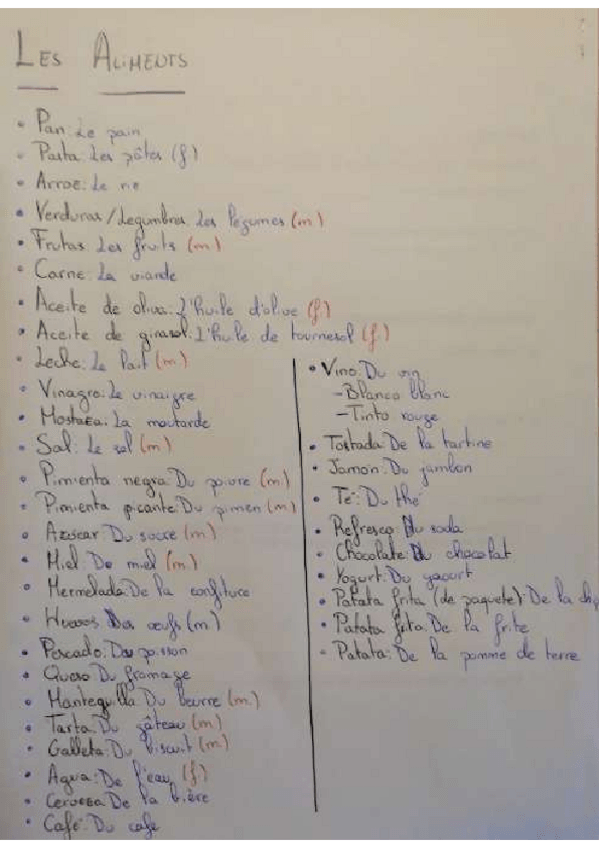 LES ALIMENTS
• Pan: Le pain
• Pasta: Les pâtes (f)
• Arroz: Le riz
• Verduras/Legumbres: Les légumes (m)
• Frutas: Les fruits (m)
• Carne: La viande
• Aceite de oliva: L'huile d'olive (f)
• Aceite de girasol: L'huile de tournesol (f)
• Leche: Le lait (m)
• Vinagre: Le vinaigre
• Mostaza: La moutarde
• Sal: Le sel (m)
• Pimienta negra: Du poivre (m)
• Pimienta picante: Du pimen (m)
• Azúcar: Du sucre (m)
• Miel: De miel (m)
• Mermelada: De la confiture
• Huevos: Des oeufs (m)
• Pescado: Du poisson
• Queso: Du fromage
• Mantequilla: Du beurre (m)
• Tarta: Du gâteau (m)
• Galleta: Du biscuit (m)
• Agua: De l'eau (f)
• Cerveza: De la bière
• Café: Du cafe
• Vino: Du vin
-Blanco blanc
-Tinto rouge
• Tostada: De la tartine
• Jamón: Du jambon
• Té: Du thé
• Refresco: Du soda
• Chocolate: Du chocolat
• Yogurt: Du yaourt
• Patata frita (de paquete): De la chip
• Patata frita: De la frite
• Patata: De la pomme de terre